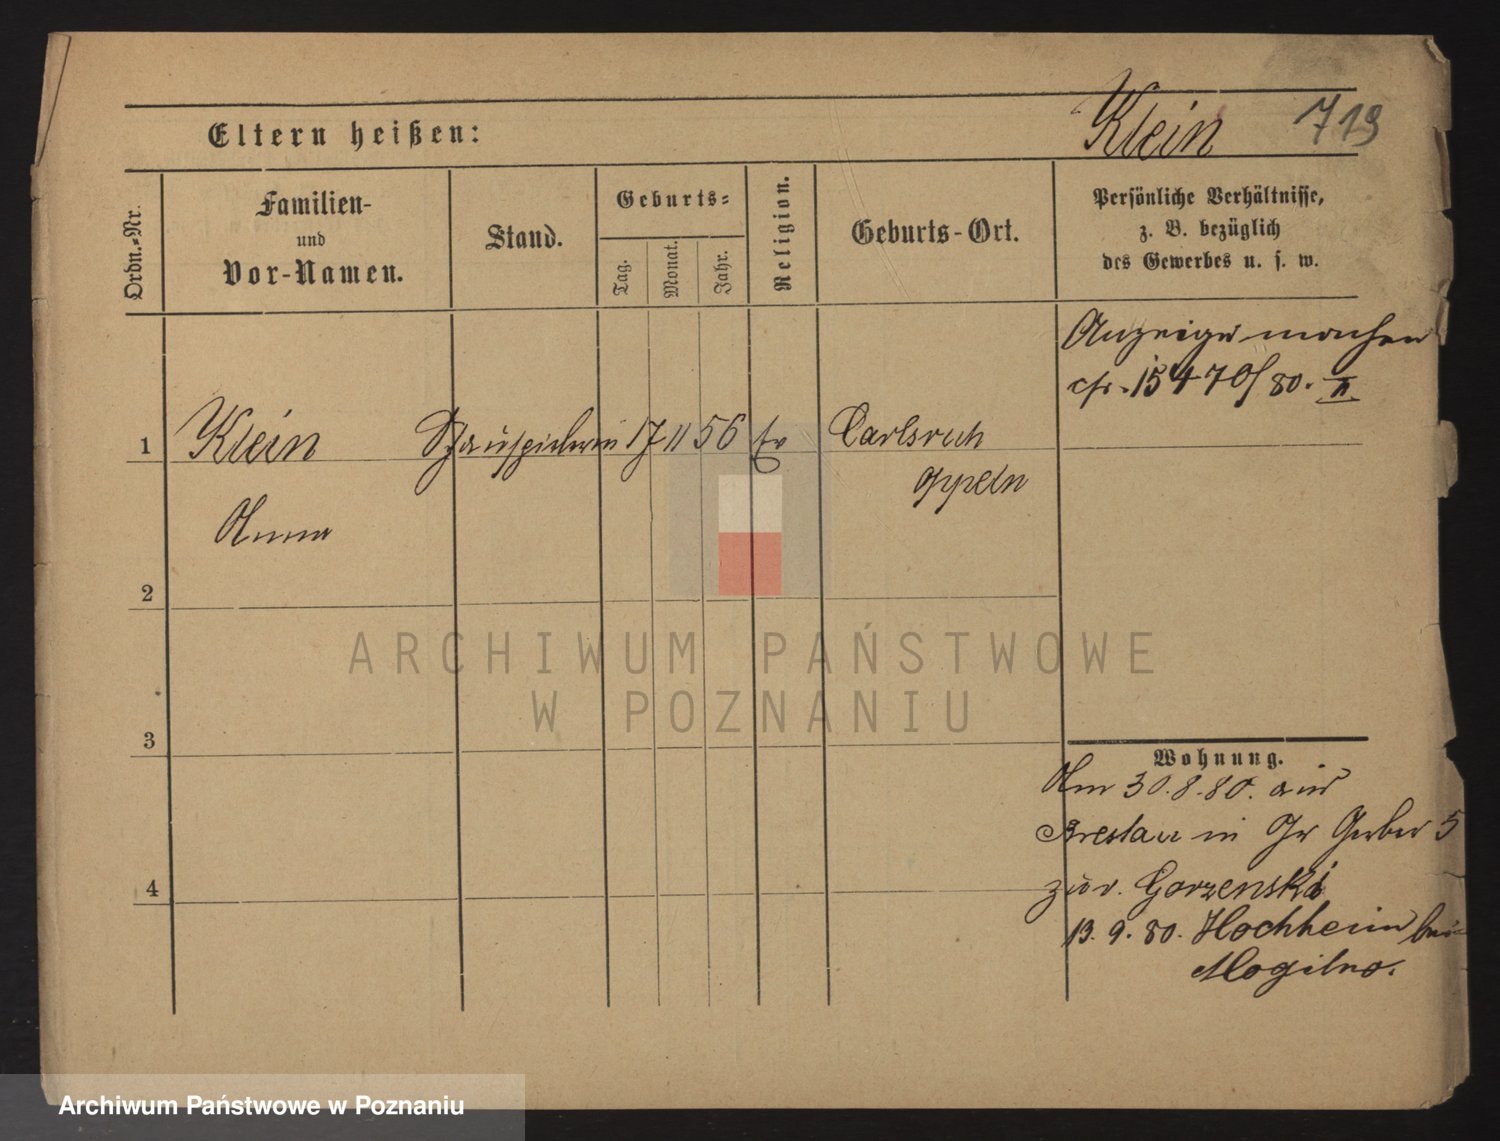 Klein 719
Eltern heißen:
Ordn.-Nr.
Familien-
und
Vor-Namen.
Stand.
Geburts-
Tag.
Monat.
Jahr.
Religion.
Geburts-Ort.
Persönliche Verhältnisse,
z. B. bezüglich
des Gewerbes u. s. w.
Anzeige machen
cfr. 15470/80. II.
1 Klein Schauspielerin 17 11 56 Ev Carlsruh
Oppeln
Anna
2
3
4
Wohnung.
Am 30.8.80. aus
Breslau in Gr Gerber 5
zur. Gorzenski
13. 9. 80. Hochheim bei
Mogilno.
ARCHIWUM PAŃSTWOWE
W POZNANIU
Archiwum Państwowe w Poznaniu